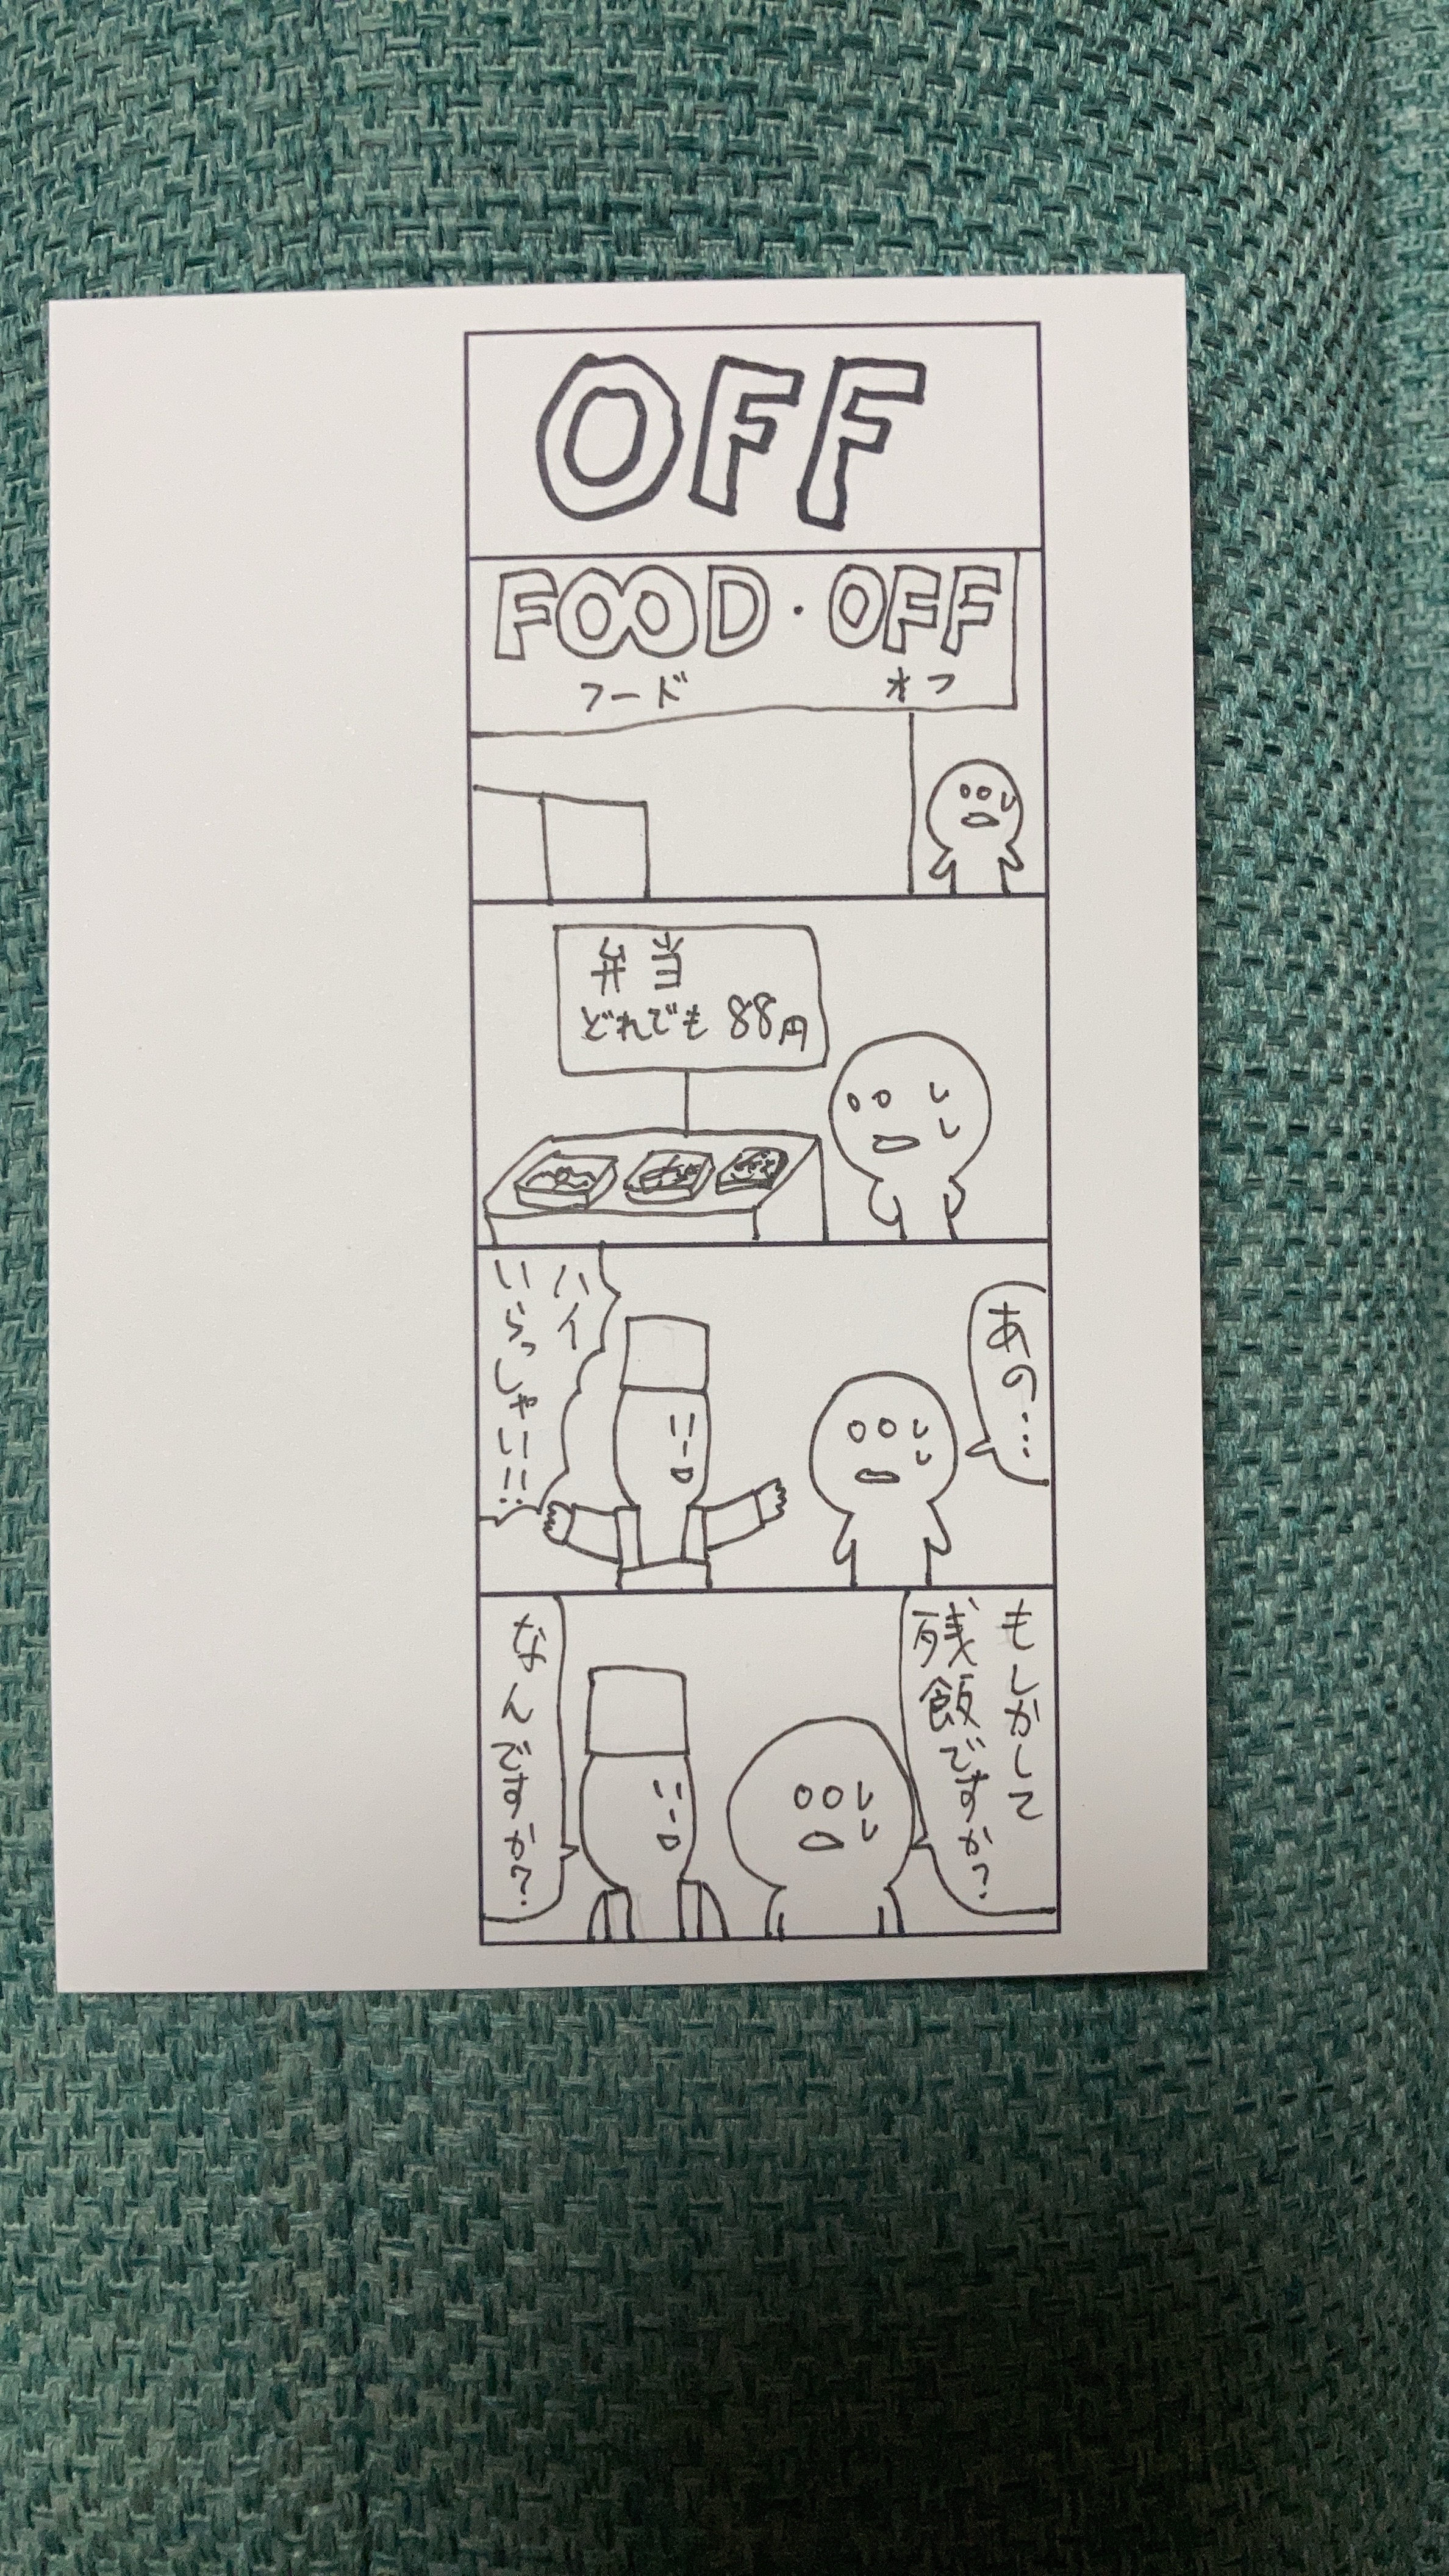 OFF
FOOD・OFF
フード オフ
弁当
どれでも 88円
あの…
ハイ
いらっしゃい!!
もしかして
残飯ですか?
なんですか?